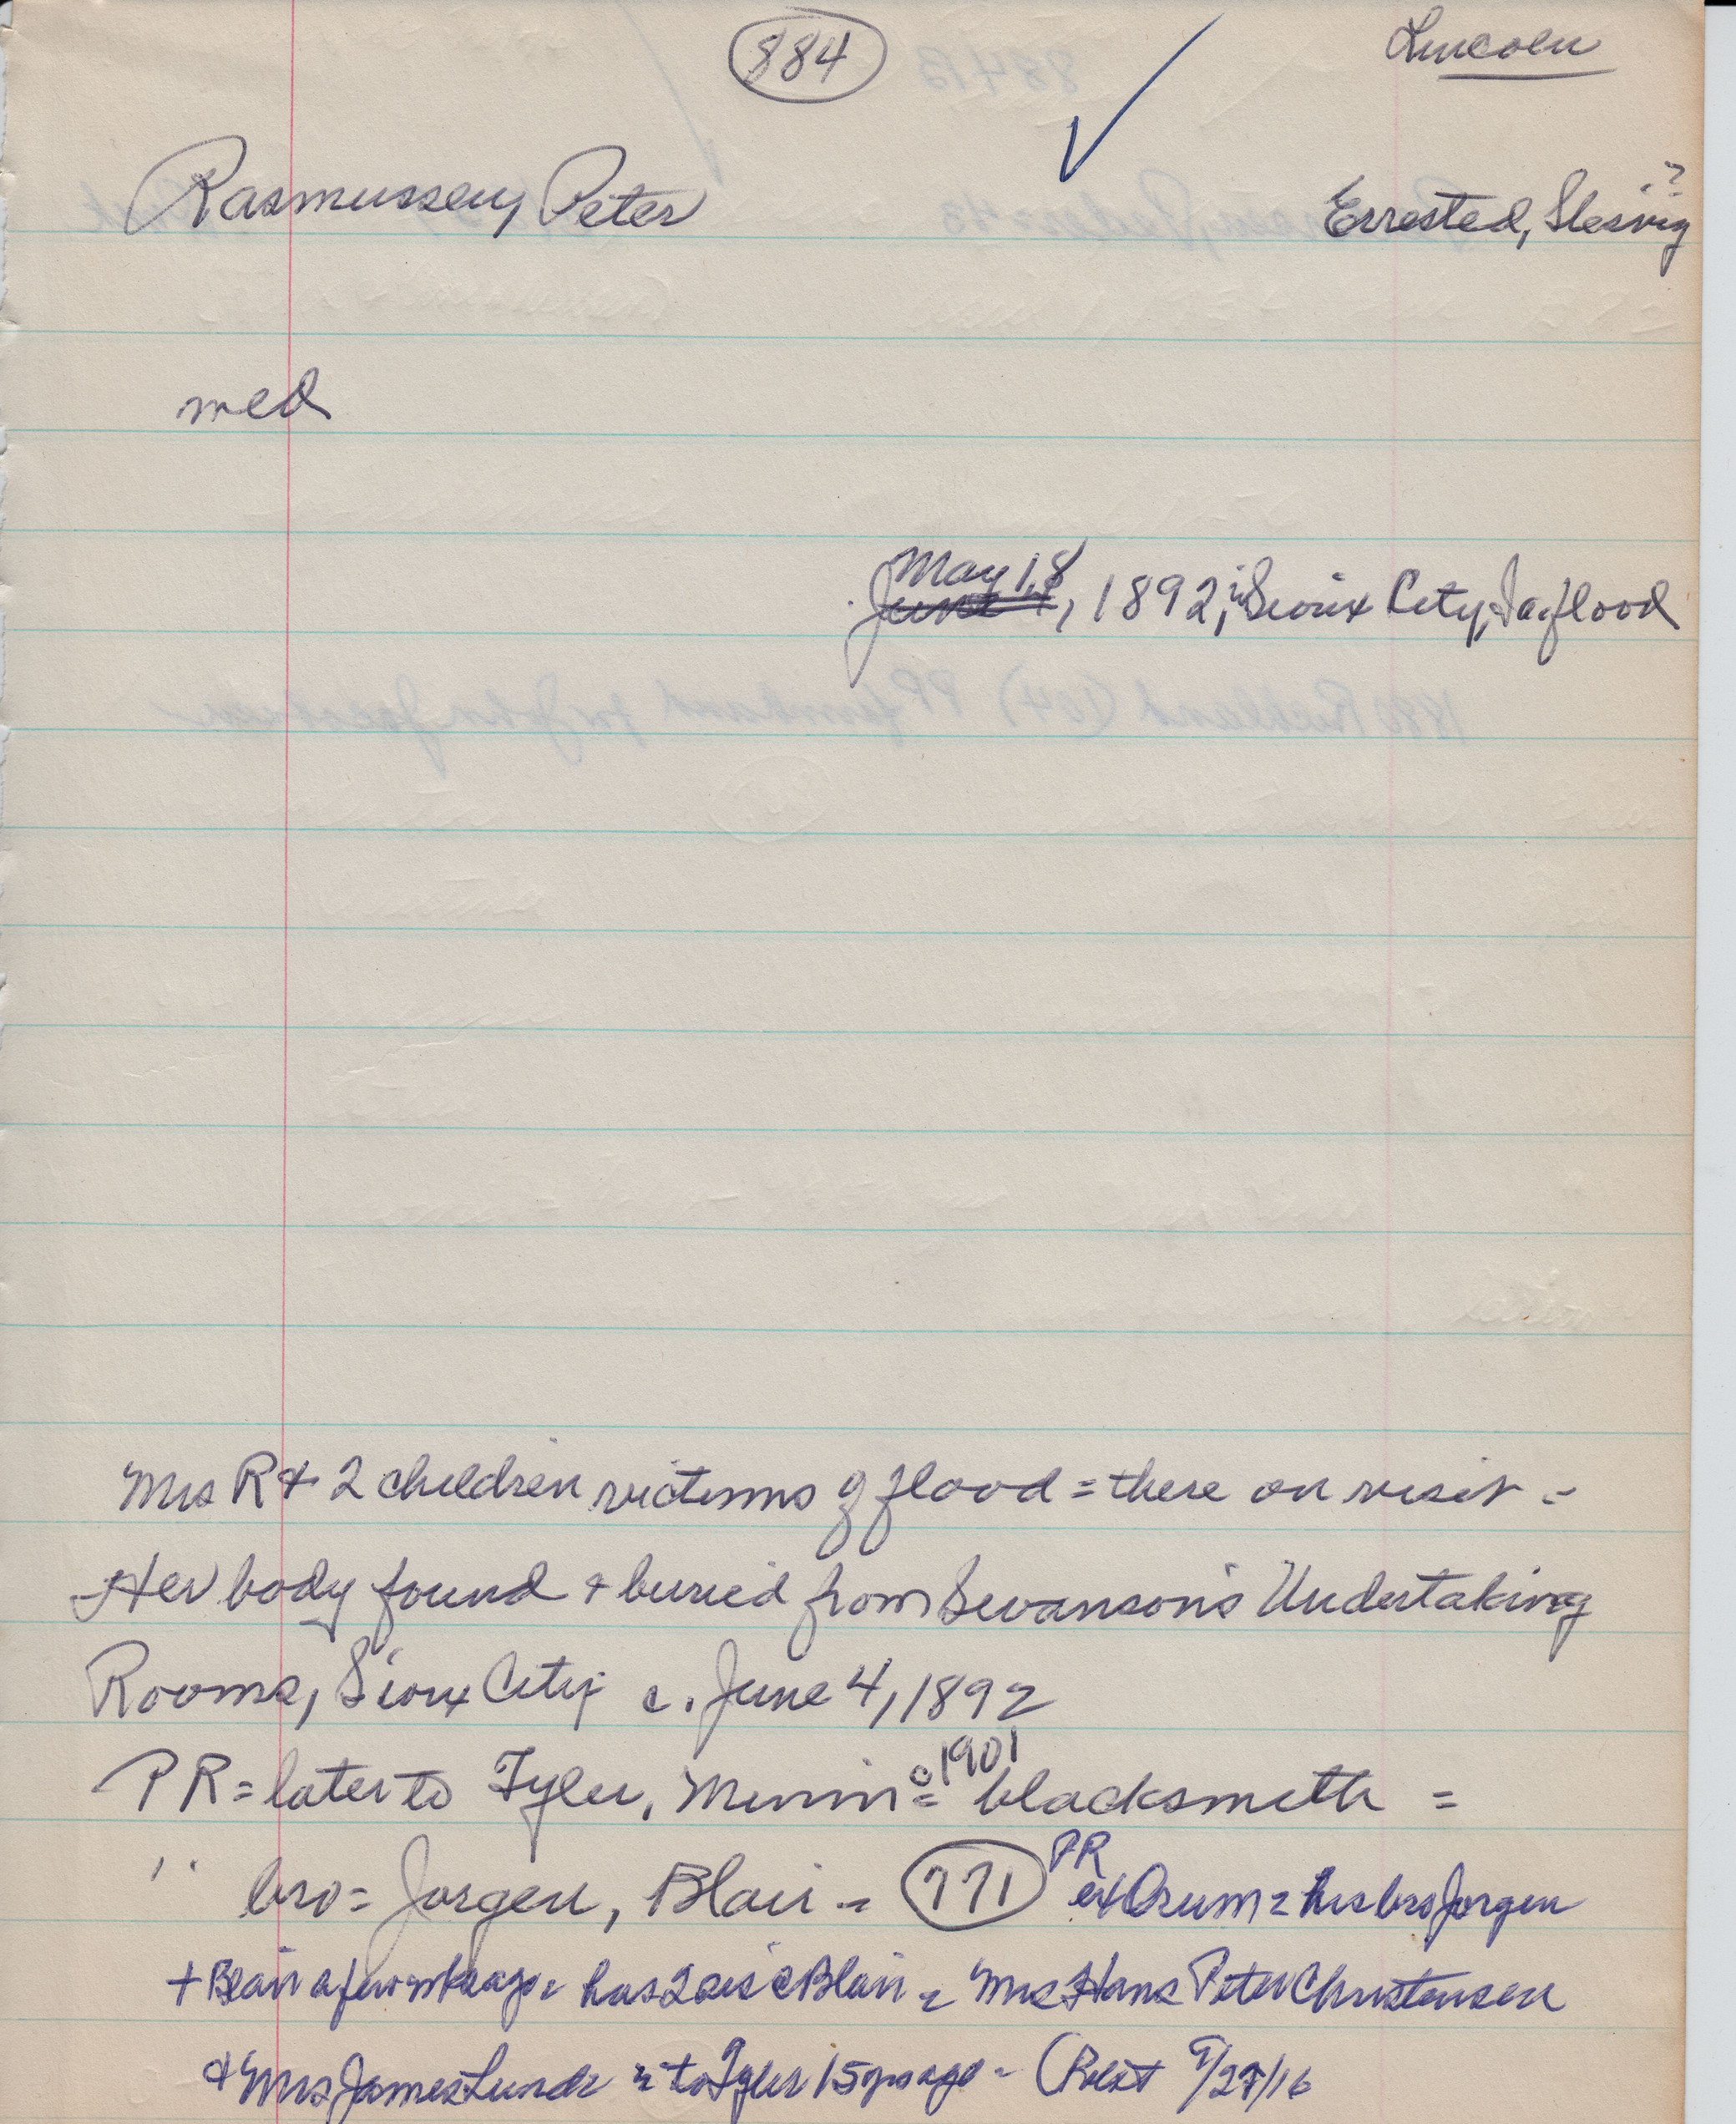 884
Lincoln
Rasmussen, Peter
?
Errested, Slesvig
med
May 18
June 4, 1892, in Sioux City, Ia flood
Mrs R + 2 children victims of flood = there on visit =
Her body found + buried from Swanson's Undertaking
Rooms, Sioux City c. June 4, 1892
PR = later to Tyler, Minn = c 1901 blacksmith =
" bro = Jorgen, Blair = 771 PR ex Orum = his bro Jorgen
+ Blair a few wks ago = has 2 sis @ Blair = Mrs Hans Peter Christensen
& Mrs James Lund = to Tyler 15 yrs ago = 9/27/16